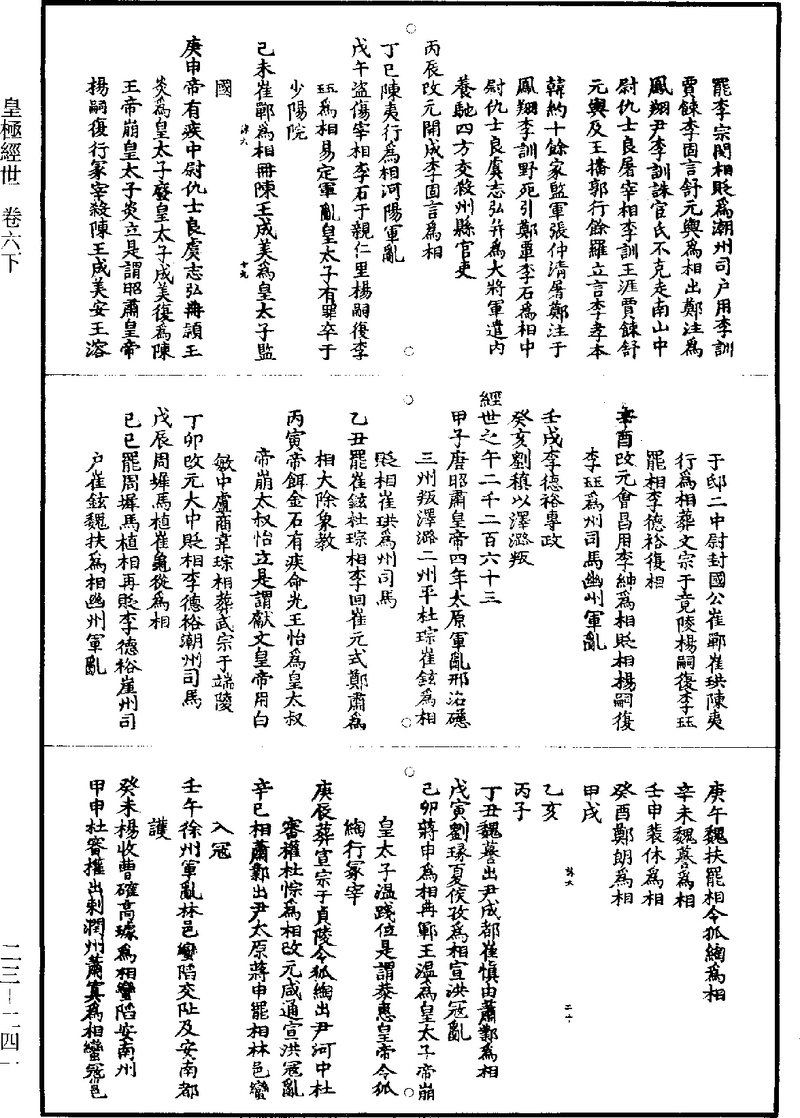 皇極經世 卷六下
罷李宗閔相貶爲潮州司户用李訓
賈餗李固言舒元輿爲相出鄭注爲
鳳翔尹李訓誅宦氏不克走南山中
尉仇士良屠宰相李訓王涯賈餗舒
元輿及王播郭行餘羅立言李孝本
韓約十餘家監軍張仲清屠鄭注于
鳳翔李訓野死引鄭覃李石爲相中
尉仇士良虞志弘弁爲大將軍遣内
養馳四方交殺州縣官吏
丙辰改元開成李固言爲相
丁巳陳夷行爲相河陽軍亂
戊午盜傷宰相李石于親仁里楊嗣復李
珏爲相易定軍亂皇太子有罪卒于
少陽院
己未崔鄲爲相冊陳王成美爲皇太子監
國
庚申帝有疾中尉仇士良虞志弘冊頴王
炎爲皇太子廢皇太子成美復爲陳
王帝崩皇太子炎立是謂昭肅皇帝
楊嗣復行冢宰殺陳王成美安王溶
于邸二中尉封國公崔鄲崔珙陳夷
行爲相葬文宗于竟陵楊嗣復李珏
罷相李德裕復相
辛酉改元會昌用李紳爲相貶相楊嗣復
李珏爲州司馬幽州軍亂
壬戌李德裕專政
癸亥劉稹以澤潞叛
經世之午二千二百六十三
甲子唐昭肅皇帝四年太原軍亂邢洺磁
三州叛澤潞二州平杜琮崔鉉爲相
貶相崔珙爲州司馬
乙丑罷崔鉉杜琮相李回崔元式鄭肅爲
相大除象教
丙寅帝餌金石有疾命光王怡爲皇太叔
帝崩太叔怡立是謂獻文皇帝用白
敏中盧商韋琮相葬武宗于端陵
丁卯改元大中貶相李德裕潮州司馬
戊辰周墀馬植崔龜從爲相
己巳罷周墀馬植相再貶李德裕崖州司
户崔鉉魏扶爲相幽州軍亂
庚午魏扶罷相令狐綯爲相
辛未魏謩爲相
壬申裴休爲相
癸酉鄭朗爲相
甲戌
乙亥
丙子
丁丑魏謩出尹成都崔愼由蕭鄴爲相
戊寅劉瑑夏侯孜爲相宣洪寇亂
己卯蔣申爲相冊鄆王溫爲皇太子帝崩
皇太子溫踐位是謂恭惠皇帝令狐
綯行冢宰
庚辰葬宣宗于貞陵令狐綯出尹河中杜
審權杜悰爲相改元咸通宣洪寇亂
辛巳相蕭鄴出尹太原蔣申罷相林邑蠻
入寇
壬午徐州軍亂林邑蠻陷交阯及安南都
護
癸未楊收曹確高璩爲相蠻陷安南州
甲申杜審權出刺潤州蕭寘爲相蠻寇邕
二三-二四一